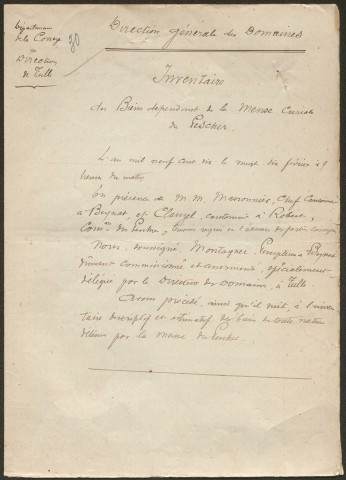 Département
de la Corrèze
Direction
de Tulle
30
Direction générale des Domaines
Inventaire
des Biens dépendant de la Mense Curiale
du Pescher.
L'an mil neuf cent six le vingt six février à 9
heures du matin
En présence de M. M. Meronnier, Chef Cantonnier
à Beynat, et Clauzel, cantonnier à Robert,
Comne du Pescher, témoins requis en l'absence
Nous, soussigné Montagner, Percepteur à Beynat
dûment commissionné et assermenté, spécialement
délégué par le Directeur des Domaines, à Tulle
Avons procédé, ainsi qu'il suit, à l'inven
taire descriptif et estimatif des biens de toute nature
détenus par la mense du Pescher